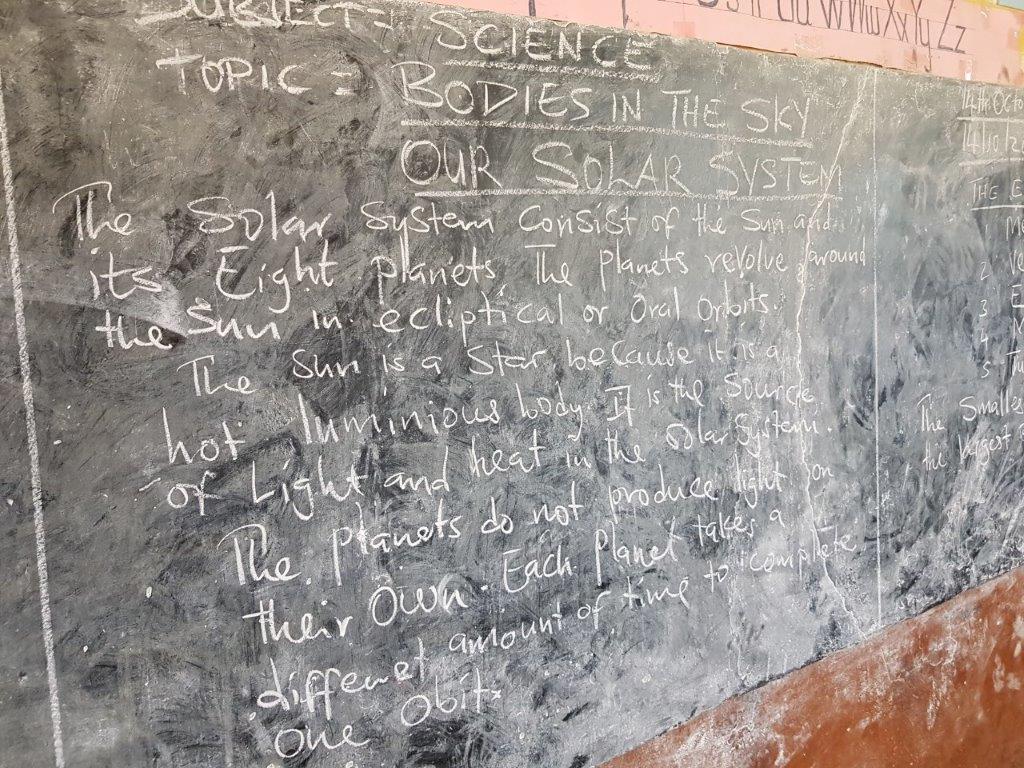 Uu Vv Ww Xx Yy Zz
SUBJECT = SCIENCE
TOPIC = BODIES IN THE SKY
OUR SOLAR SYSTEM
The Solar System Consist of the Sun and
its Eight planets. The planets revolve around
the Sun in ecliptical or Oral Orbits.
The Sun is a Star because it is a
hot luminious body. It is the Source
of Light and heat in the Solar System.
The planets do not produce light on
their Own. Each planet takes a
differnet amount of time to complete
One Obit
14th Octo
14/10/2
THE E
2
3 E
4
5
The Smalles
the largest